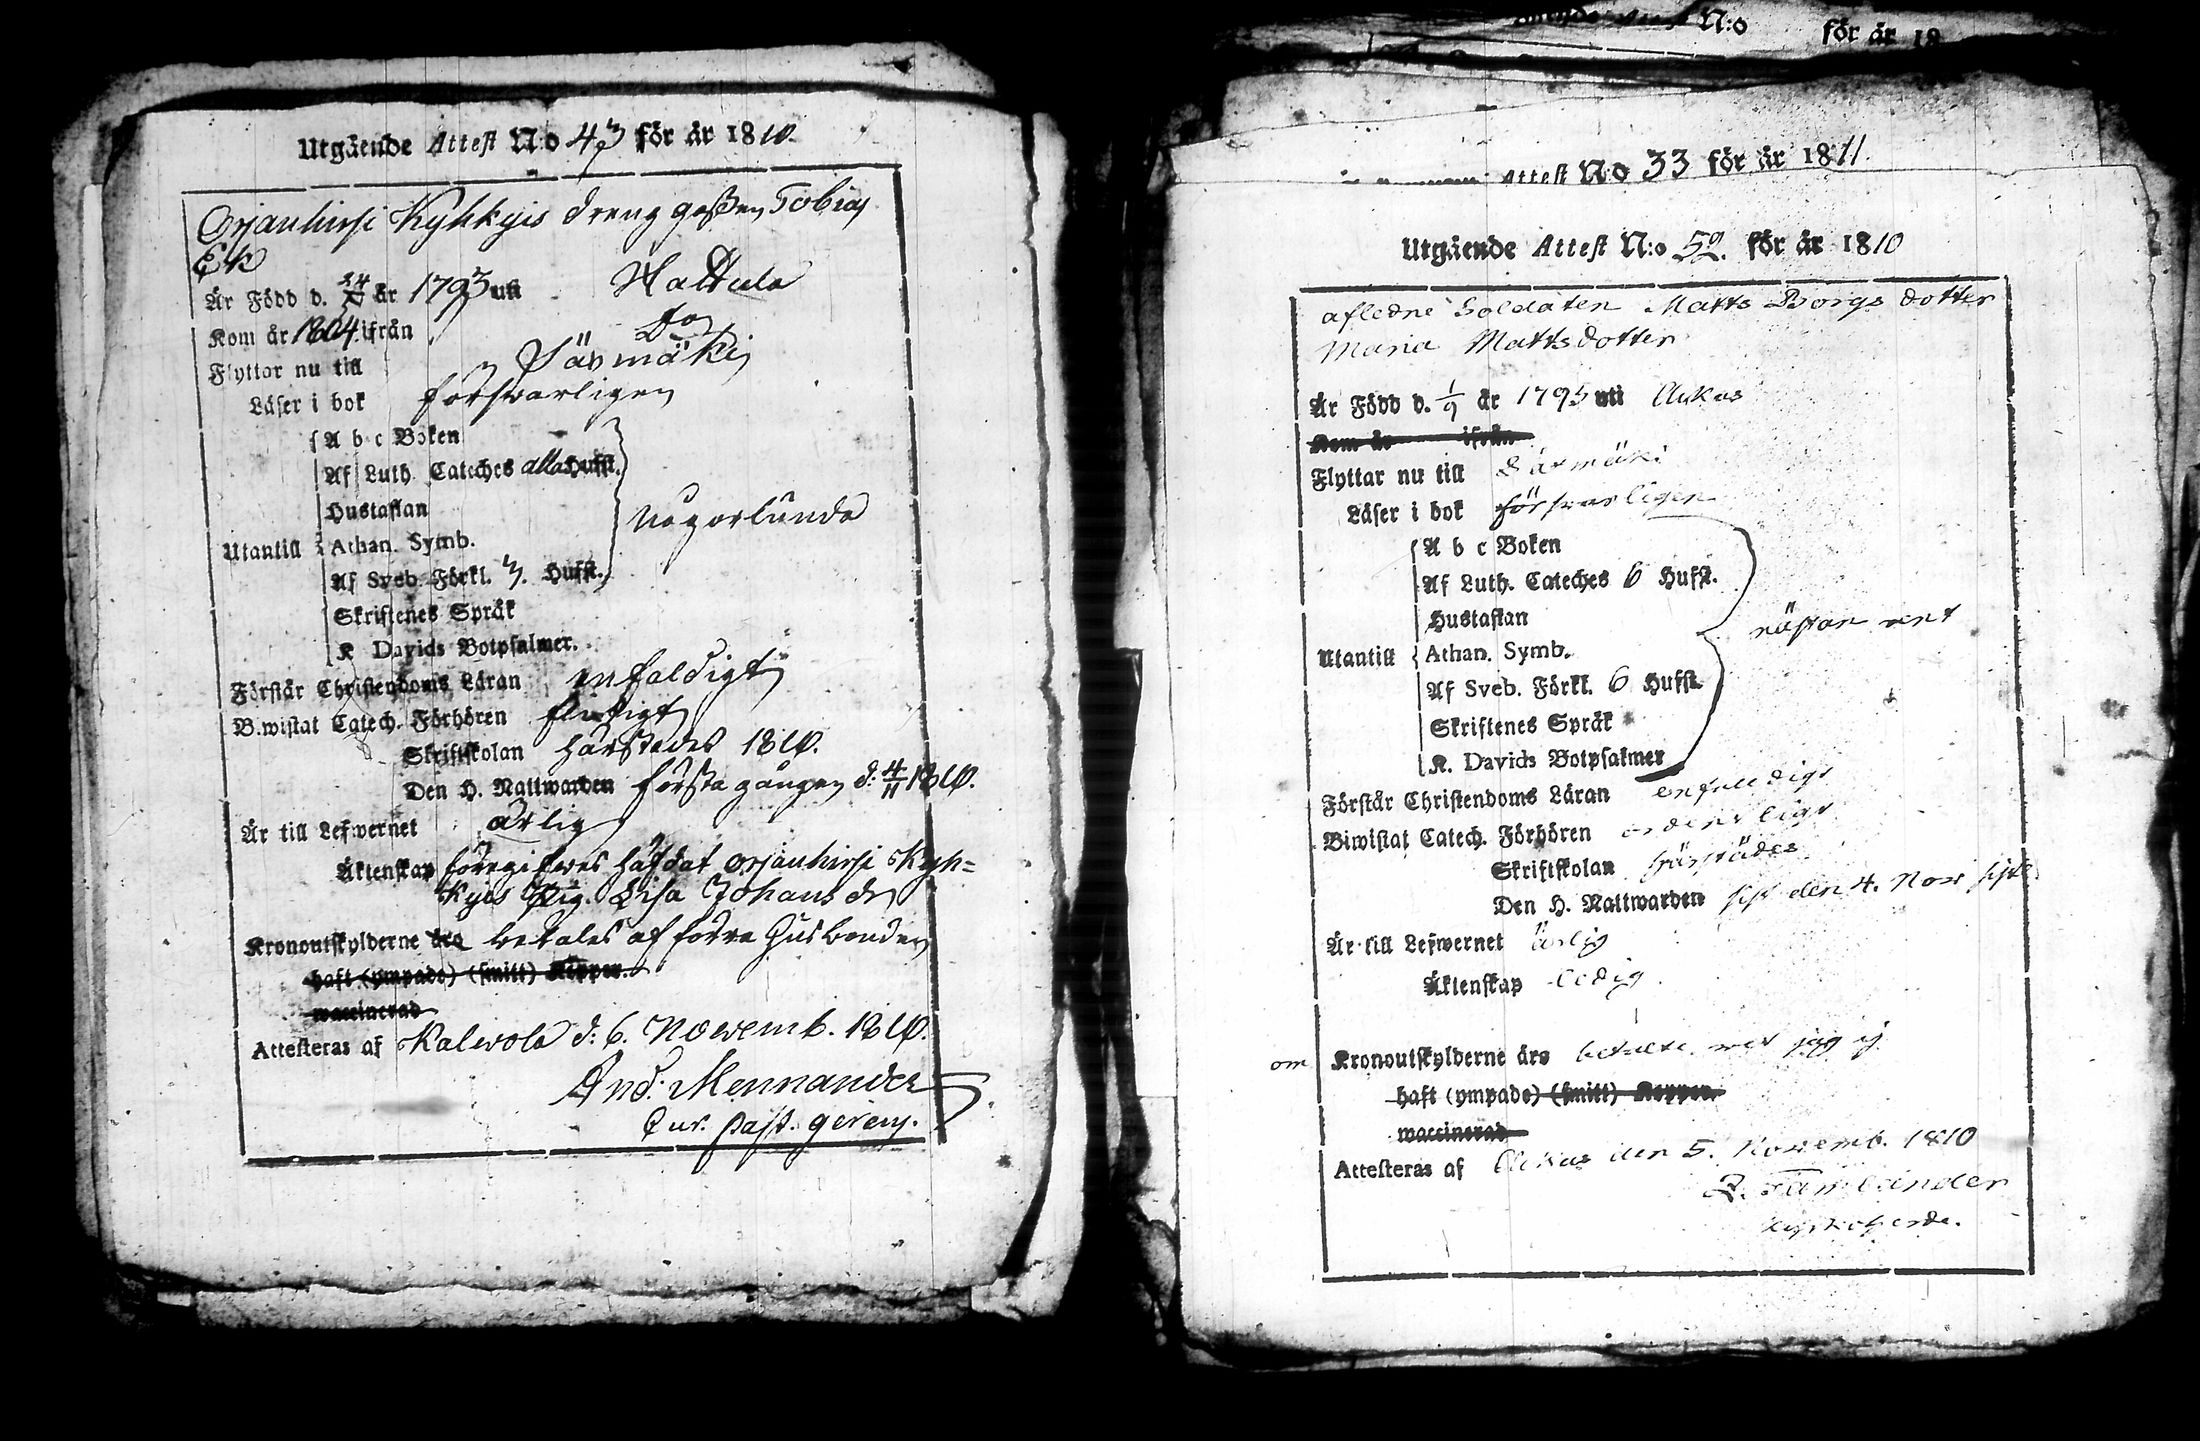 Utgående Attest N:o 43 för år 1810.
Orjanhirsi Kyhkyis drenggossen Tobias
Ek
Är Född d. 24/ år 1793 uti Hattula
Kom år 1804 ifrån Do
Flyttar nu till Särmäki
Läser i bok forswarligen
A b c Boken
Af Luth. Cateches alla Hufst.
Hustaflan
Någorlunda
Utantill Athan. Symb.
Af Sveb. Förkl. 3. Hufst.
Skriftenes Språk
K Davids Botpsalmer.
Förstår Christendoms Läran enfaldigt
Biwistat Catech. Förhören flitigt
Skriftskolan härstedes 1810.
Den H. Nattwarden första gången d: 4/11 1810.
Är till Lefwernet ärlig
Äktenskap föregifwes häfdat Orjanhirsi Kyh=
kyis Pig. Lisa Johansdr
Kronoutskylderne äro betales af förra Husbonden
haft (ympade) (smitt) Koppor.
waccinerad
Attesteras af Kalwola d: 6. Novemb. 1810.
And. Mennander
Cur. past. gerens.
för år 18
N:o
Attest N:o 33 för år 1811.
Utgående Attest N:o 52. för år 1810
afledne Soldaten Matts Borgs dotter
Maria Mattsdotter
Är Född d. 1/9 år 1795 uti Akas
Kom år ifrån
Flyttar nu till Särmäki
Läser i bok försvarligen
A b c Boken
Af Luth. Cateches 6 Hufst.
Hustaflan
nästan rent
Utantill Athan. Symb.
Af Sveb. Förkl. 6 Hufst.
Skriftenes Språk
K. Davids Botpsalmer
Förstår Christendoms Läran enfaldigt
Biwistat Catech. Förhören ordentligt
Skriftskolan härstädes
Den H. Nattwarden sist den 4. Nov sistl.
Är till Lefwernet ärlig
Äktenskap ledig
om Kronoutskylderne äro betalte vet jag ej
haft (ympade) (smitt) Koppor.
waccinerad
Attesteras af Akas den 5. Novemb. 1810
Kyrkoherde.